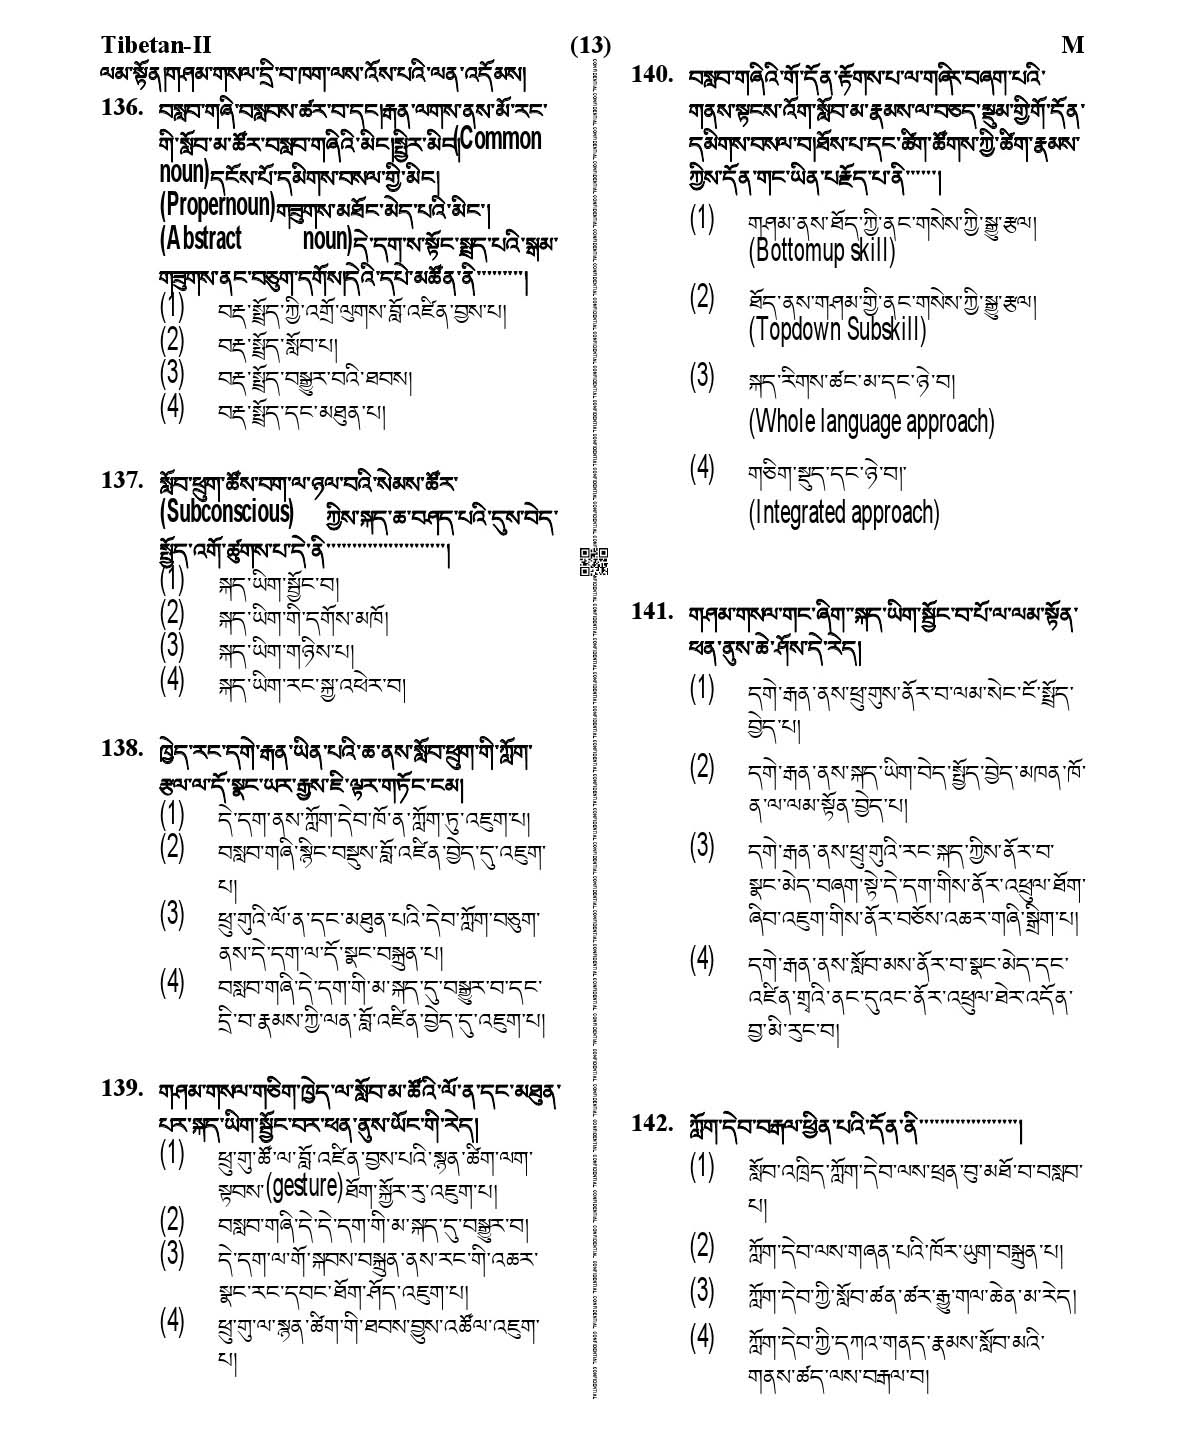 Tibetan-II
(13)
M
ལམ་སྟོན།གཤམ་གསལ་དྲི་བ་ཁག་ལས་འོས་པའི་ལན་འདོམས།
136. བསླབ་གཞི་བསླབས་ཚར་བ་དང།རྒན་ལགས་ནས་མོ་རང་
གི་སློབ་མ་ཚོར་བསླབ་གཞིའི་མིང།སྤྱིར་མིང(Common
noun)དངོས་པོ་དམིགས་བསལ་གྱི་མིང།
(Propernoun)གཟུགས་མཐོང་མེད་པའི་མིང་།
(Abstract noun)དེ་དག་ས་སྟོང་སྤྲད་པའི་སྒམ་
གཟུགས་ནང་བཅུག་དགོས།དེའི་དཔེ་མཚོན་ནི་·········།
(1) བརྡ་སྤྲོད་ཀྱི་འགྲོ་ལུགས་བློ་འཛིན་བྱས་པ།
(2) བརྡ་སྤྲོད་སློབ་པ།
(3) བརྡ་སྤྲོད་བསྒྱུར་བའི་ཐབས།
(4) བརྡ་སྤྲོད་དང་མཐུན་པ།
137. སློབ་ཕྲུག་ཚོས་བག་ལ་ཉལ་བའི་སེམས་ཚོར་
(Subconscious) ཀྱིས་སྐད་ཆ་བཤད་པའི་དུས་བེད་
སྤྱོད་འགོ་ཚུགས་པ་དེ་ནི་·······················།
(1) སྐད་ཡིག་སྦྱོང་བ།
(2) སྐད་ཡིག་གི་དགོས་མཁོ།
(3) སྐད་ཡིག་གཉིས་པ།
(4) སྐད་ཡིག་རང་སྐྱ་འཕེར་བ།
138. ཁྱེད་རང་དགེ་རྒན་ཡིན་པའི་ཆ་ནས་སློབ་ཕྲུག་གི་ཀློག་
རྩལ་ལ་དོ་སྣང་ཡར་རྒྱས་ཇི་ལྟར་གཏོང་ངམ།
(1) དེ་དག་ནས་ཀློག་དེབ་ཁོ་ན་ཀློག་ཏུ་འཇུག་པ།
(2) བསླབ་གཞི་སྙིང་བསྡུས་བློ་འཛིན་བྱེད་དུ་འཇུག་
པ།
(3) ཕྲུ་གུའི་ལོ་ན་དང་མཐུན་པའི་དེབ་ཀློག་བཅུག་
ནས་དེ་དག་ལ་དོ་སྣང་བསྐྲུན་པ།
(4) བསླབ་གཞི་དེ་དག་གི་མ་སྐད་དུ་བསྒྱུར་བ་དང་
དྲི་བ་རྣམས་ཀྱི་ལན་བློ་འཛིན་བྱེད་དུ་འཇུག་པ།
139. གཤམ་གསལ་གཅིག་ཁྱེད་ལ་སློབ་མ་ཚོའི་ལོ་ན་དང་མཐུན་
པར་སྐད་ཡིག་སྦྱོང་བར་ཕན་ནུས་ཡོང་གི་རེད།
(1) ཕྲུ་གུ་ཚོ་ལ་བློ་འཛིན་བྱས་པའི་སྙན་ཚིག་ལག་
སྟབས་(gesture)ཐོག་སྐྱོར་རུ་འཇུག་པ།
(2) བསླབ་གཞི་དེ་དེ་དག་གི་མ་སྐད་དུ་བསྒྱུར་བ།
(3) དེ་དག་ལ་གོ་སྐབས་བསྐྲུན་ནས་རང་གི་འཆར་
སྣང་རང་དབང་ཐོག་ཤོད་འཇུག་པ།
(4) ཕྲུ་གུ་ལ་སྙན་ཚིག་གི་ཐབས་བྱུས་འཚོལ་འཇུག་
པ།
140. བསླབ་གཞིའི་གོ་དོན་རྟོགས་པ་ལ་གཞིར་བཞག་པའི་
གནས་སྟངས་འོག་སློབ་མ་རྣམས་ལ་བཅད་སྡུམ་གྱིགོ་དོན་
དམིགས་བསལ་བ།ཐོས་པ་དང་ཚིག་ཚོགས་ཀྱི་ཚིག་རྣམས་
ཀྱིས་དོན་གང་ཡིན་པརྗོད་པ་ནི་·····།
(1) གཤམ་ནས་ཐོད་ཀྱི་ནང་གསེས་ཀྱི་སྒྱུ་རྩལ།
(Bottomup skill)
(2) ཐོད་ནས་གཤམ་གྱི་ནང་གསེས་ཀྱི་སྒྱུ་རྩལ།
(Topdown Subskill)
(3) སྐད་རིགས་ཚང་མ་དང་ཉེ་བ།
(Whole language approach)
(4) གཅིག་སྡུད་དང་ཉེ་བ།
(Integrated approach)
141. གཤམ་གསལ་གང་ཞིག་སྐད་ཡིག་སྦྱོང་བ་པོ་ལ་ལམ་སྟོན་
ཕན་ནུས་ཆེ་ཤོས་དེ་རེད།
(1) དགེ་རྒན་ནས་ཕྲུ་གུས་ནོར་བ་ལམ་སེང་ངོ་སྤྲོད་
བྱེད་པ།
(2) དགེ་རྒན་ནས་སྐད་ཡིག་བེད་སྤྱོད་བྱེད་མཁན་ཁོ་
ན་ལ་ལམ་སྟོན་བྱེད་པ།
(3) དགེ་རྒན་ནས་ཕྲུ་གུའི་རང་སྐད་ཀྱིས་ནོར་བ་
སྣང་མེད་བཞག་སྟེ་དེ་དག་གིས་ནོར་འཕྲུལ་ཐོག་
ཞིབ་འཇུག་གིས་ནོར་བཅོས་འཆར་གཞི་སྒྲིག་པ།
(4) དགེ་རྒན་ནས་སློབ་མས་ནོར་བ་སྣང་མེད་དང་
འཛིན་གྲྭའི་ནང་དུའང་ནོར་འཕྲུལ་ཐེར་འདོན་
བྱ་མི་རུང་བ།
142. ཀློག་དེབ་བརྒལ་ཕྱིན་པའི་དོན་ནི་···················།
(1) སློབ་འཁྲིད་ཀློག་དེབ་ལས་ཕྲན་བུ་མཐོ་བ་བསླབ་
པ།
(2) ཀློག་དེབ་ལས་གཞན་པའི་ཁོར་ཡུག་བསྐྲུན་པ།
(3) ཀློག་དེབ་ཀྱི་སློབ་ཚན་ཚར་རྒྱུ་གལ་ཆེན་མ་རེད།
(4) ཀློག་དེབ་ཀྱི་དཀའ་གནད་རྣམས་སློབ་མའི་
གནས་ཚད་ལས་བརྒལ་བ།